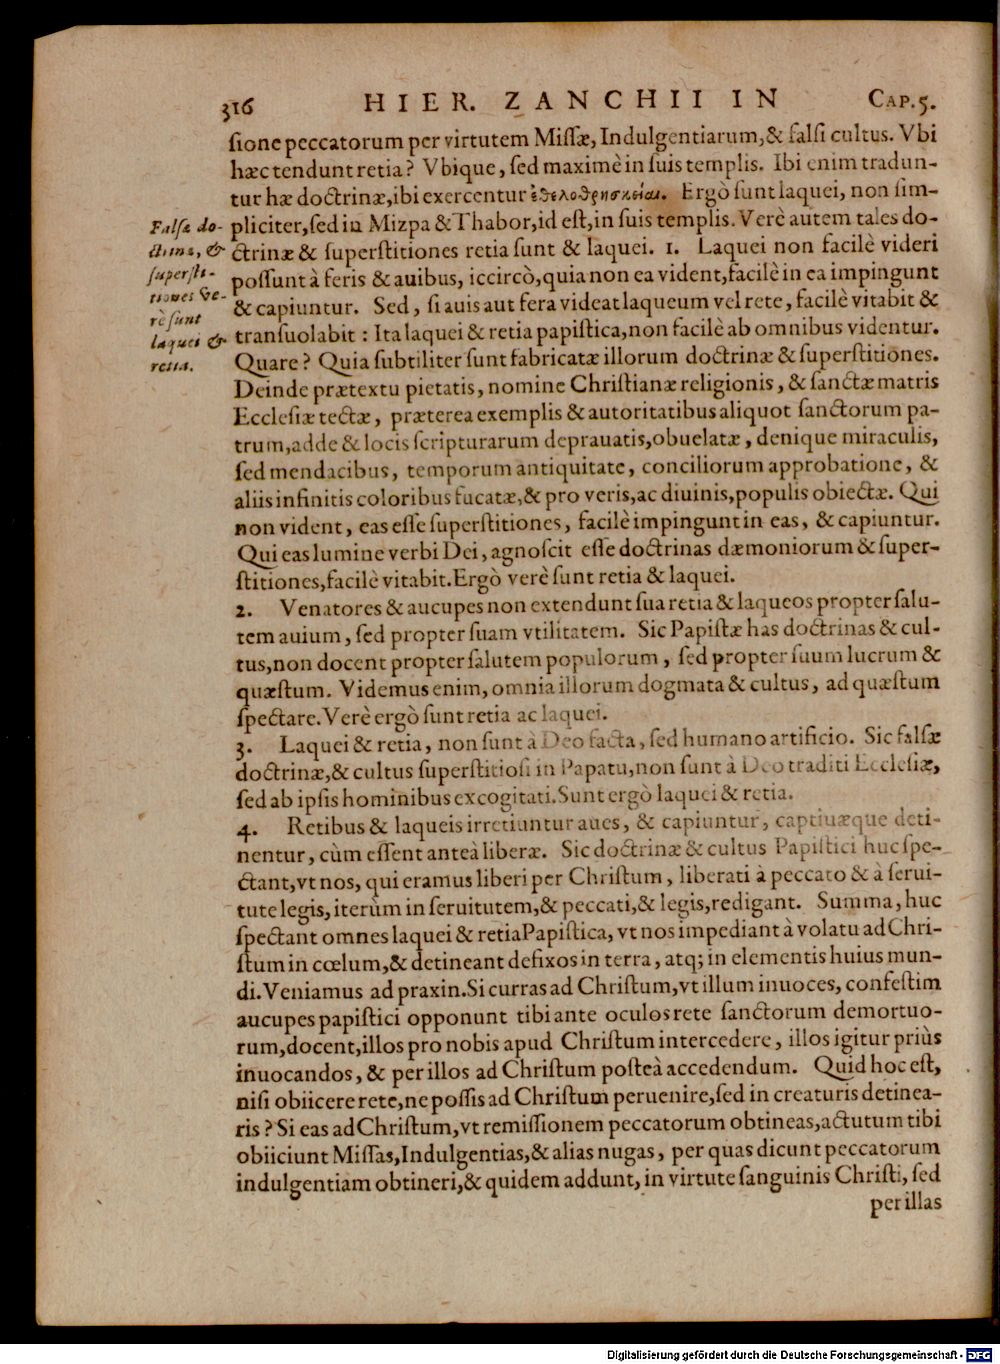 316 HIER. ZANCHII IN CAP. 5.
ſione peccatorum per virtutem Miſſæ, Indulgentiarum, & falſi cultus. Vbi
hæc tendunt retia? Vbique, ſed maximè in ſuis templis. Ibi enim tradun-
tur hæ doctrinæ, ibi exercentur ἐθελοθρησκεῖαι. Ergò ſunt laquei, non ſim-
pliciter, ſed in Mizpa & Thabor, id eſt, in ſuis templis. Verè autem tales do-
ctrinæ & ſuperſtitiones retia ſunt & laquei. 1. Laquei non facilè videri
poſſunt à feris & auibus, iccircò, quia non ea vident, facilè in ea impingunt
& capiuntur. Sed, ſi auis aut fera videat laqueum vel rete, facilè vitabit &
tranſuolabit : Ita laquei & retia papiſtica, non facilè ab omnibus videntur.
Quare? Quia ſubtiliter ſunt fabricatæ illorum doctrinæ & ſuperſtitiones.
Deinde prætextu pietatis, nomine Chriſtianæ religionis, & ſanctæ matris
Eccleſiæ tectæ, præterea exemplis & autoritatibus aliquot ſanctorum pa-
trum, adde & locis ſcripturarum deprauatis, obuelatæ, denique miraculis,
ſed mendacibus, temporum antiquitate, conciliorum approbatione, &
aliis infinitis coloribus fucatæ, & pro veris, ac diuinis, populis obiectæ. Qui
non vident, eas eſſe ſuperſtitiones, facilè impingunt in eas, & capiuntur.
Qui eas lumine verbi Dei, agnoſcit eſſe doctrinas dæmoniorum & ſuper-
ſtitiones, facilè vitabit. Ergò verè ſunt retia & laquei.
2. Venatores & aucupes non extendunt ſua retia & laqueos propter ſalu-
tem auium, ſed propter ſuam vtilitatem. Sic Papiſtæ has doctrinas & cul-
tus, non docent propter ſalutem populorum, ſed propter ſuum lucrum &
quæſtum. Videmus enim, omnia illorum dogmata & cultus, ad quæſtum
ſpectare. Verè ergò ſunt retia ac laquei.
3. Laquei & retia, non ſunt à Deo facta, ſed humano artificio. Sic falſæ
doctrinæ, & cultus ſuperſtitioſi in Papatu, non ſunt à Deo traditi Eccleſiæ,
ſed ab ipſis hominibus excogitati. Sunt ergò laquei & retia.
4. Retibus & laqueis irretiuntur aues, & capiuntur, captiuæque deti-
nentur, cùm eſſent anteà liberæ. Sic doctrinæ & cultus Papiſtici huc ſpe-
ctant, vt nos, qui eramus liberi per Chriſtum, liberati à peccato & à ſerui-
tute legis, iterùm in ſeruitutem, & peccati, & legis, redigant. Summa, huc
ſpectant omnes laquei & retia Papiſtica, vt nos impediant à volatu ad Chri-
ſtum in cœlum, & detineant defixos in terra, atq; in elementis huius mun-
di. Veniamus ad praxin. Si curras ad Chriſtum, vt illum inuoces, confeſtim
aucupes papiſtici opponunt tibi ante oculos rete ſanctorum demortuo-
rum, docent, illos pro nobis apud Chriſtum intercedere, illos igitur priùs
inuocandos, & per illos ad Chriſtum poſteà accedendum. Quid hoc eſt,
niſi obiicere rete, ne poſſis ad Chriſtum peruenire, ſed in creaturis detinea-
ris? Si eas ad Chriſtum, vt remiſſionem peccatorum obtineas, actutum tibi
obiiciunt Miſſas, Indulgentias, & alias nugas, per quas dicunt peccatorum
indulgentiam obtineri, & quidem addunt, in virtute ſanguinis Chriſti, ſed
per illas
Falſæ do-
ctrinæ, &
ſuperſti-
tiones ve-
rè ſunt
laquei &
retia.
Digitalisierung gefördert durch die Deutsche Forschungsgemeinschaft - DFG